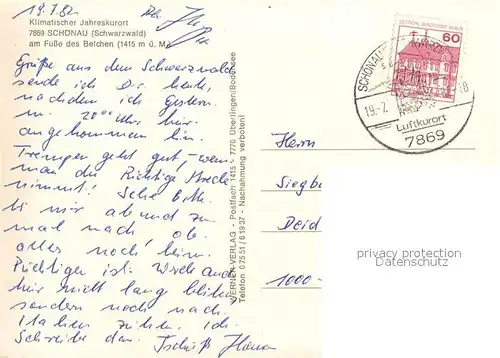 19.7.82
Klimatischer Jahreskurort
7869 SCHÖNAU (Schwarzwald)
am Fuße des Belchen (1415 m ü. M.)
Grüße aus dem Schwarzwald
sende ich Dir heute,
nachdem ich gestern
um 20 00 Uhr hier
angekommen bin.
Trempen geht gut, wenn
man die Richtige Strecke
nimmt! Sehe Bitte
bei mir ab und zu
mal nach ob
alles noch beim
Richtigen ist. Werde auch
hier nicht lang bleiben
sondern noch nach
Italien ziehen. Ich
Schreibe dann. Tschüß
WERNER-VERLAG - Postfach 1415 - 7770 Überlingen/Bodensee
Telefon 07551/61937 - Nachahmung verboten!
DEUTSCHE BUNDESPOST BERLIN
60
SCHÖNAU
19.-7.
18
Luftkurort
7869
Herrn
Siegb
Deid
1000-
privacy protection
Datenschutz